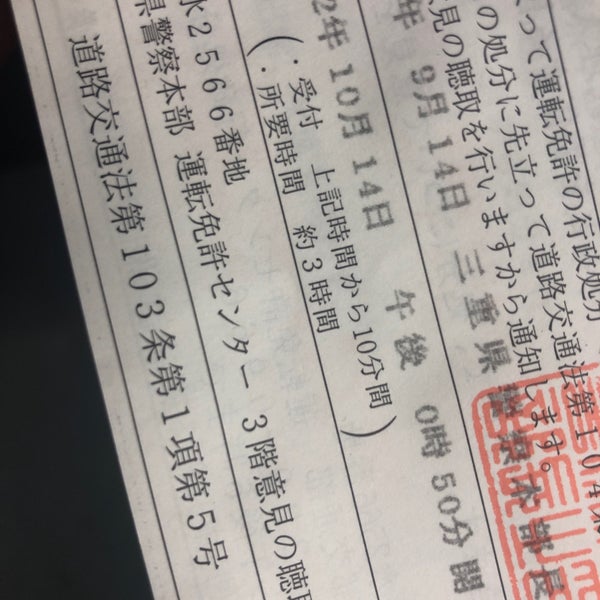 って運転免許の行政処分
の処分に先立って道路交通法第104条
意見の聴取を行いますから通知します。
年 9月14日 三重県警察本部長
2年10月14日 午後 0時50分 開
(・受付 上記時間から10分間)
・所要時間 約3時間
水2566番地
県警察本部 運転免許センター 3階意見の聴
道路交通法第103条第1項第5号